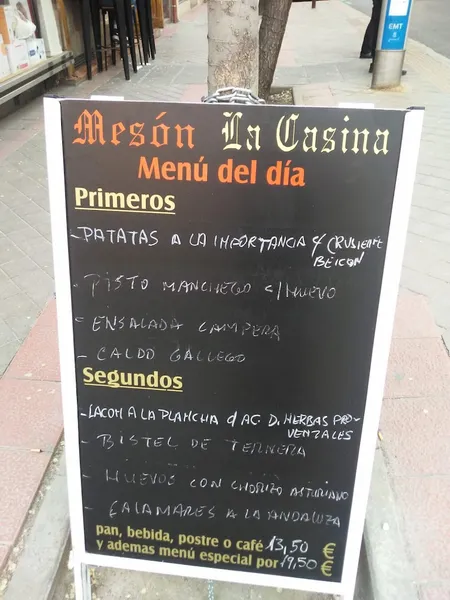 EMT
Mesón La Casina
Menú del día
Primeros
- PATATAS A LA IMPORTANCIA Y CRUJIENTE
BEICON
- PISTO MANCHEGO C/HUEVO
- ENSALADA CAMPERA
- CALDO GALLEGO
Segundos
- LACON A LA PLANCHA C/ AC. D. HERBAS PRO-
VENZALES
- BISTEC DE TERNERA
- HUEVOS CON CHORIZO ASTURIANO
- CALAMARES A LA ANDALUZA
pan, bebida, postre o café 13,50 €
y ademas menú especial por 19,50 €